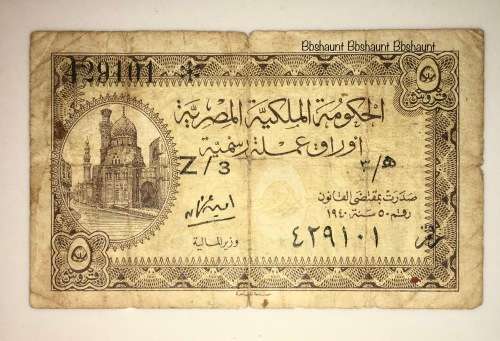 Bbshaunt Bbshaunt Bbshaunt
429101
٥
قروش
الحكومة الملكية المصرية
أوراق عملة رسمية
Z/3
صدرت بمقتضى القانون
رقم ٥٠ سنة ١٩٤٠
وزير المالية
٤٢٩١٠١
٥
قروش